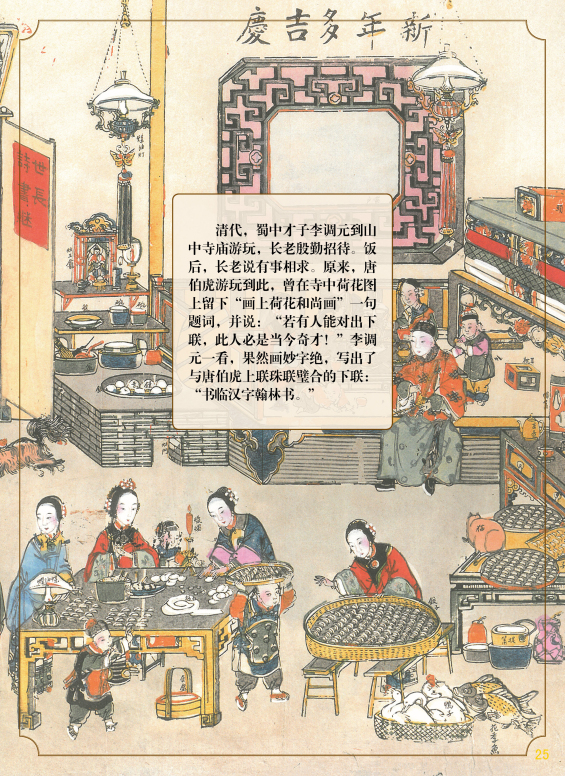 新年多吉慶
世長
詩書継
清代，蜀中才子李调元到山
中寺庙游玩，长老殷勤招待。饭
后，长老说有事相求。原来，唐
伯虎游玩到此，曾在寺中荷花图
上留下“画上荷花和尚画”一句
题词，并说：“若有人能对出下
联，此人必是当今奇才！”李调
元一看，果然画妙字绝，写出了
与唐伯虎上联珠联璧合的下联：
“书临汉字翰林书。”
猫
25